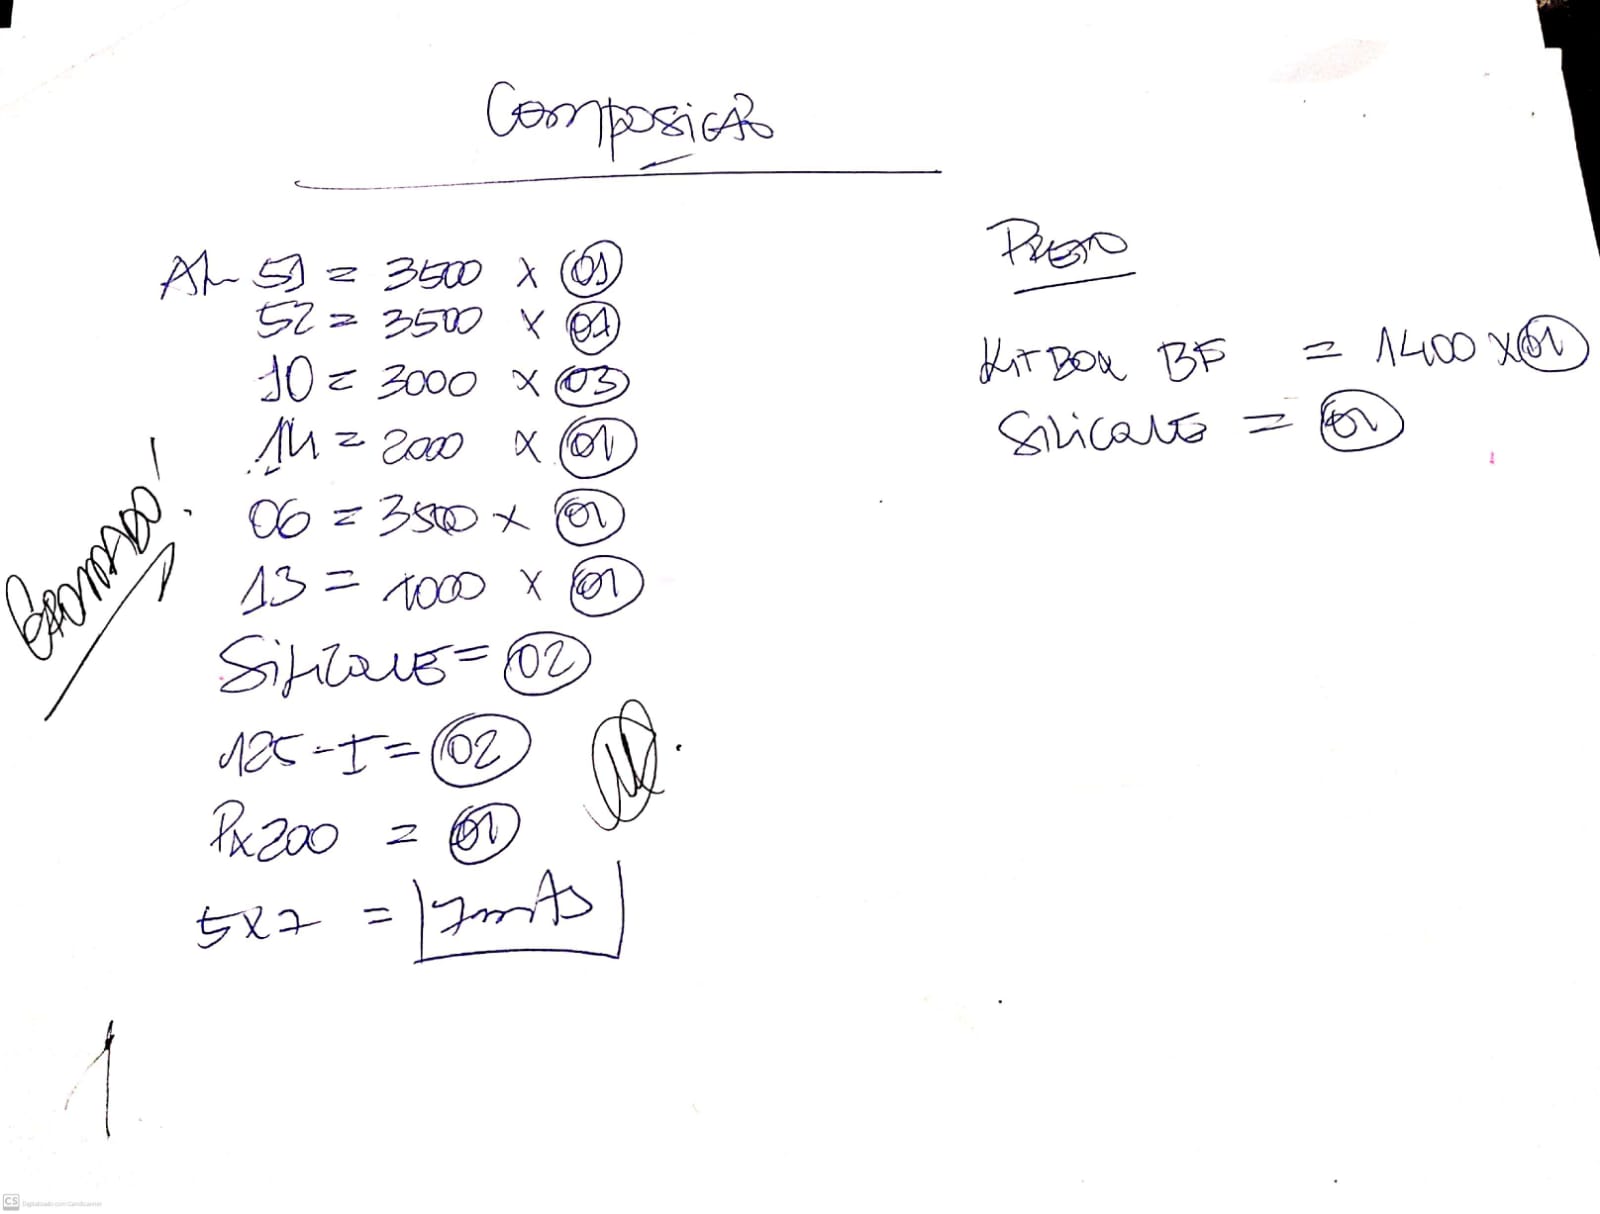 Composição
AL 51 = 3500 x 01
52 = 3500 x 01
10 = 3000 x 03
14 = 2000 x 01
06 = 3500 x 01
13 = 1000 x 01
Silicone = 02
125-I = 02
Px200 = 01
5x7 = 7mts
Cromado!
1
Preto
Kit Box BF = 1400 x 01
Silicone = 01
CS Digitalizado com CamScanner